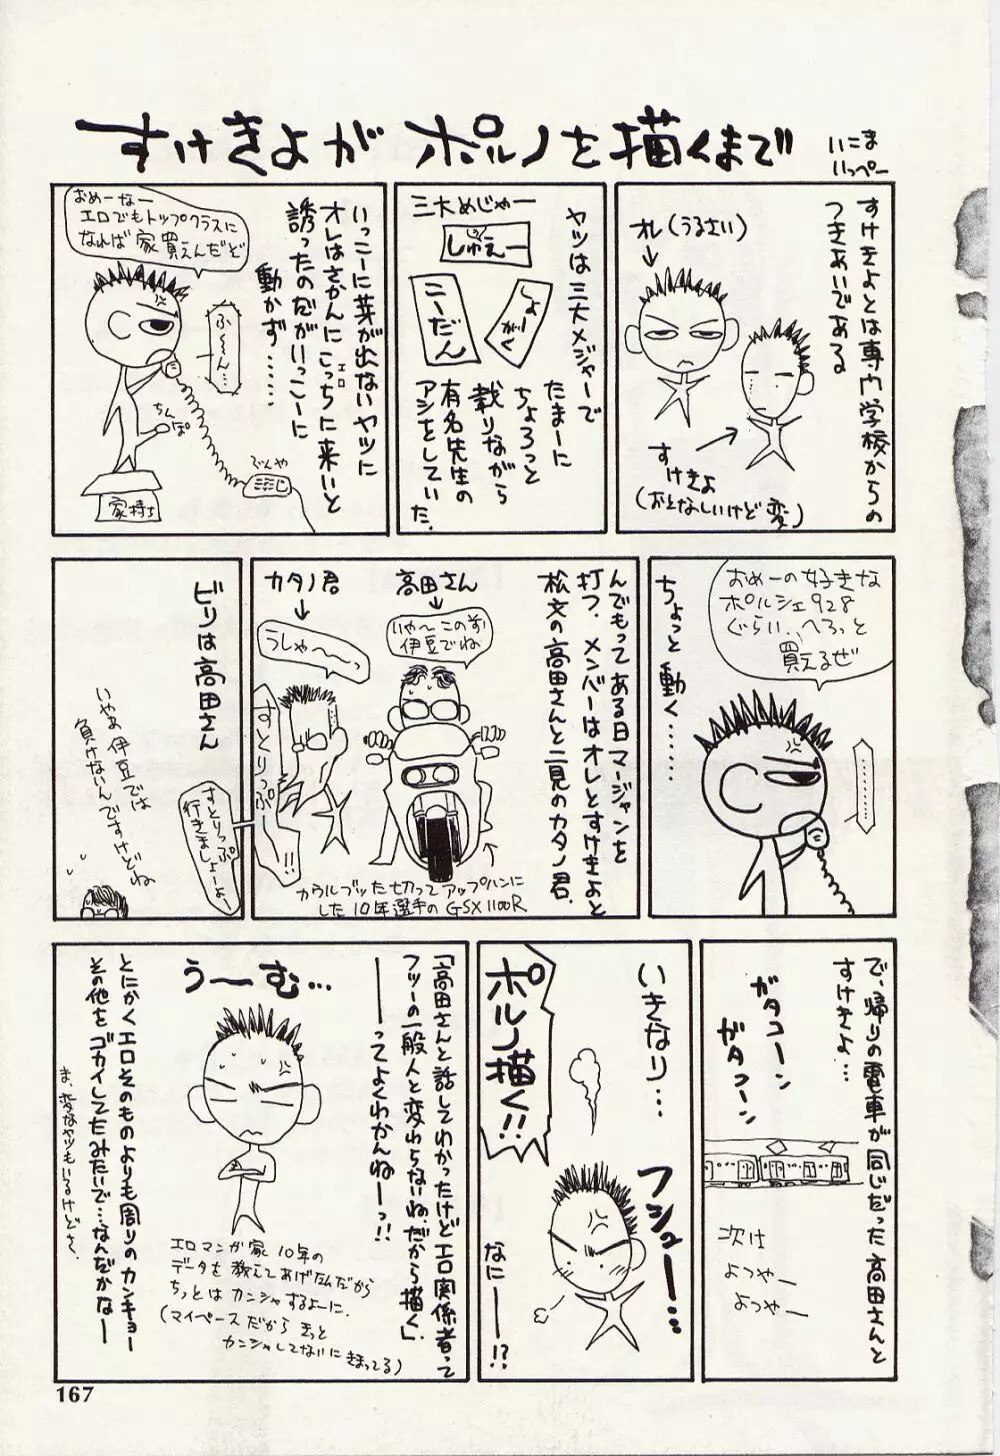 すけきよがポルノを描くまで
いこま
いっぺー
すけきよとは専門学校からの
つきあいである
オレ(うるさい)
すけきよ
(おとなしいけど変)
ヤツは三大メジャーで
たまーに
ちょろっと
載りながら
有名先生の
アシをしていた。
三大めじゃー
しゅえー
しょーがく
こーだん
いっこーに芽が出ないヤツに
オレはさかんにこっちに来いと
エロ
誘ったのだがいっこーに
動かず……
おめーなー
エロでもトップクラスに
なれば家買えんだど
ふ〜〜ん…
ちんぽ
でんや
家持ち
おめーの好きな
ポルシェ928
ぐらい、へろっと
買えるぜ
ちょっと動く……
…………
んでもってある日マージャンを
打つ、メンバーはオレとすけきよと
松文の高田さんと二見のカタノ君。
高田さん
いや〜このまえ
伊豆でね
カタノ君
うしゃ〜〜っ
すとりっぷー!!
カウルブッた切ってアップハンに
した10年選手のGSX1100R
ビリは高田さん
すとりっぷ
行きましょーよー
いやぁ伊豆では
負けないんですけどね
で、帰りの電車が同じだった高田さんと
すけきよ…
ガタコーン
ガタコーン
次は
よつやー
よつやー
いきなり…
ポルノ描く!!
フシューー…
なにーー!?
「高田さんと話してわかったけどエロ関係者って
フツーの一般人と変わらないね、だから描く」
――ってよくわかんねーっ!!
うーむ…
エロマンガ家10年の
データを教えてあげたんだから
ちっとはカンシャするよーに。
(マイペースだからきっと
カンシャしてないにきまってる)
とにかくエロそのものよりも周りのカンキョー
その他をゴカイしてたみたいで…なんだかなー
ま、変なヤツもいるけどさ、
167